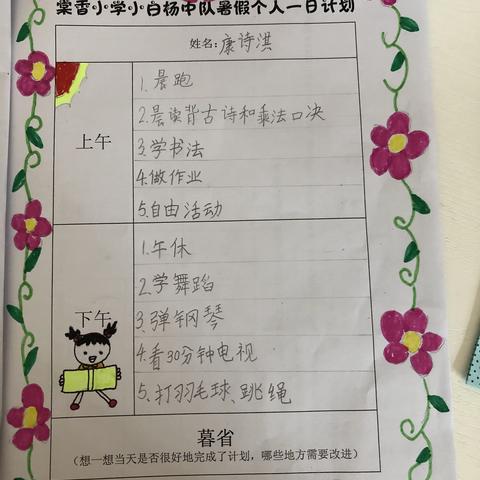 棠香小学小白杨中队暑假个人一日计划
姓名：康诗淇
上午
1.晨跑
2.晨读背古诗和乘法口决
3.学书法
4.做作业
5.自由活动
下午
1.午休
2.学舞蹈
3.弹钢琴
4.看30分钟电视
5.打羽毛球、跳绳
暮省
（想一想当天是否很好地完成了计划，哪些地方需要改进）